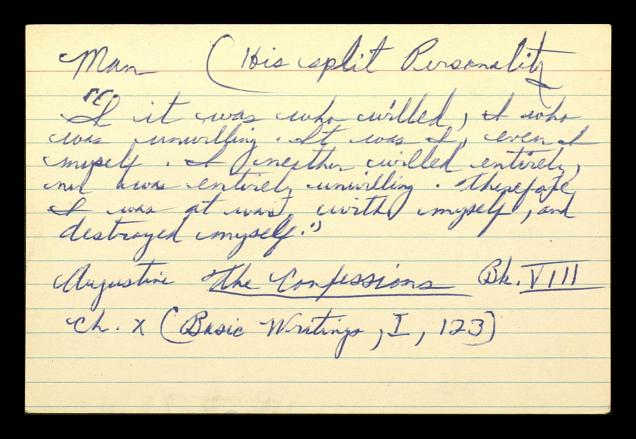 Man (His split Personality
"I it was who willed, I who
was unwilling. It was I, even I
myself. I neither willed entirely,
nor was entirely unwilling. Therefore
I was at war with myself, and
destroyed myself."
Augustine The Confessions Bk. VIII
Ch. X (Basic Writings, I, 123)